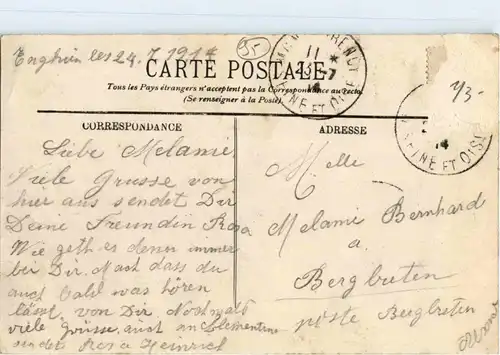 Enghien les 24.7.1914
95
CARTE POSTALE
Tous les Pays étrangers n'acceptent pas la Correspondance au recto.
(Se renseigner à la Poste).
11
-7
14
SEINE ET OISE
SEINE ET OISE
14
CORRESPONDANCE
ADRESSE
Liebe Melanie
Viele Grusse von
hier aus sendet Dir
Deine Freundin Rosa
Wie geth es denn immer
bei Dir. Mach dass du
auch bald was hören
lässt von Dir.
viele Grüsse auch an Clementine
sendet Rosa Heinrich
Melle
Melanie Bernhard
a
Bergbieten
poste Bergbieten